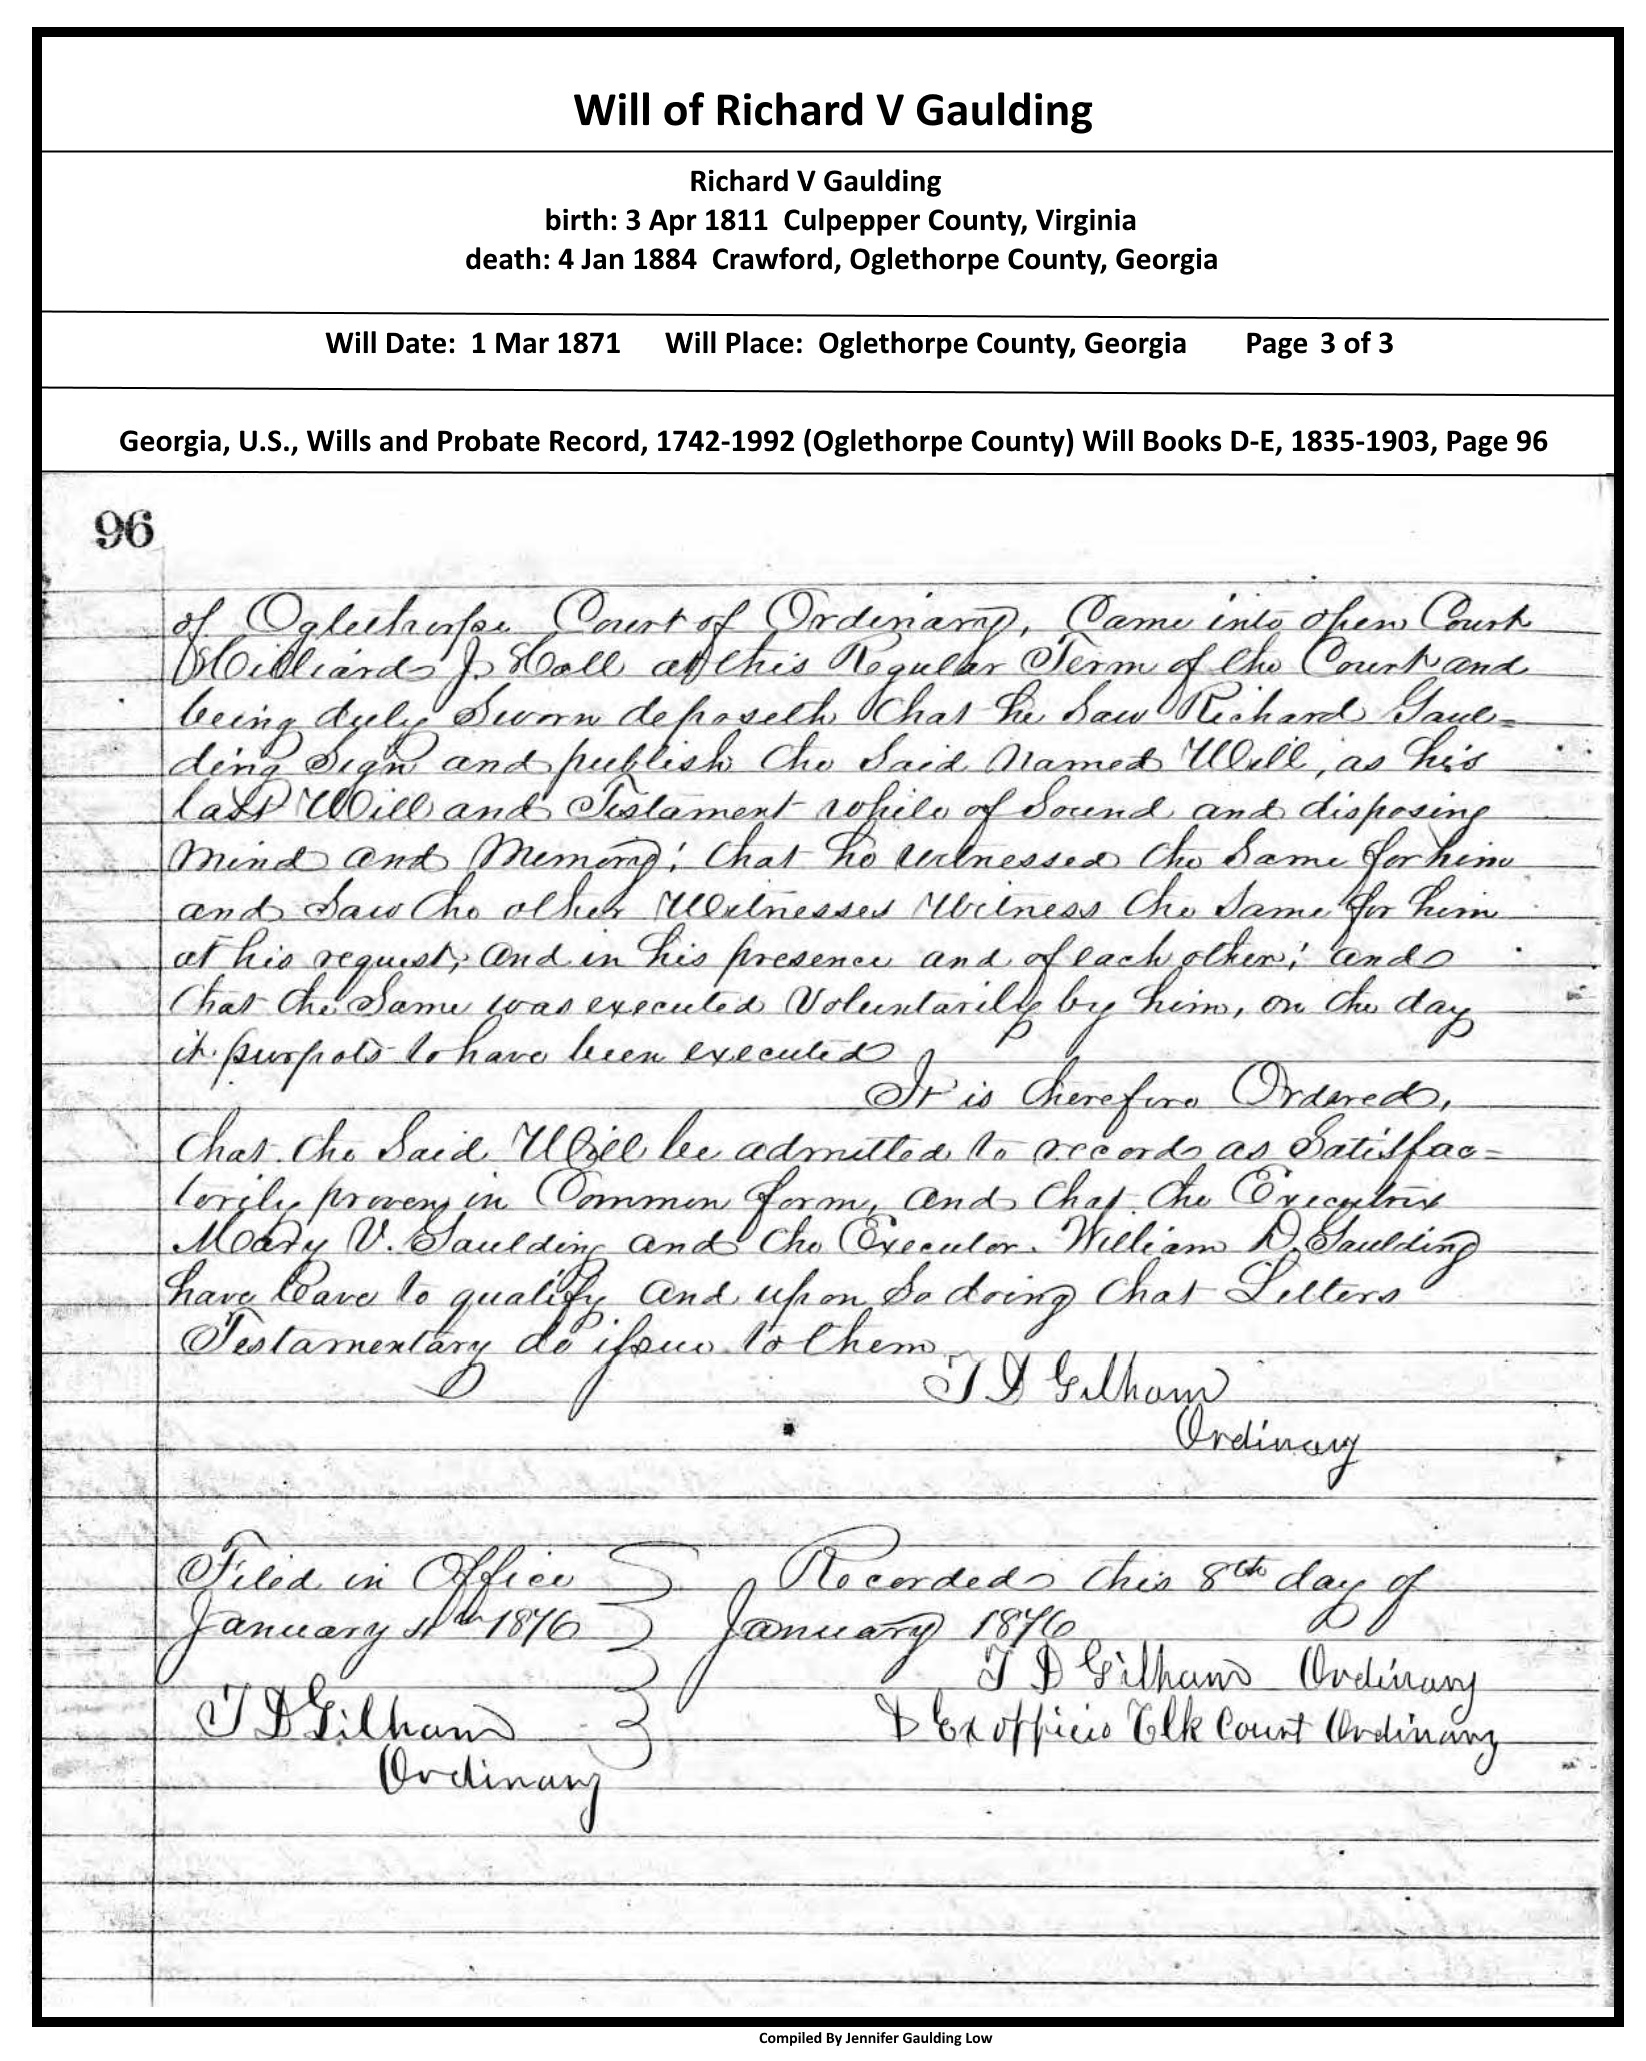 Will of Richard V Gaulding
Richard V Gaulding
birth: 3 Apr 1811 Culpepper County, Virginia
death: 4 Jan 1884 Crawford, Oglethorpe County, Georgia
Will Date: 1 Mar 1871 Will Place: Oglethorpe County, Georgia Page 3 of 3
Georgia, U.S., Wills and Probate Record, 1742-1992 (Oglethorpe County) Will Books D-E, 1835-1903, Page 96
96
of Oglethorpe Court of Ordinary, Came into open Court
J. Hall at this Regular Term of the Court and
being duly Sworn deposeth that he Saw Richard Gaul=
ding Sign and publish the Said Named Will, as his
last Will and Testament while of Sound and disposing
Mind and Memory; that he witnessed the Same for him
and Saw the other Witnesses Witness the Same for him
at his request; and in his presence and of each other; and
that the Same was executed Voluntarily by him, on the day
it purpots to have been executed
It is therefore Ordered,
that the Said Will be admitted to record as Satisfac=
torily proven in Common form, and that the Executrix
Mary V. Gaulding and the Executor William D. Gaulding
have leave to qualify and upon So doing that Letters
Testamentary do issue to them
T D Gilham
Ordinary
Filed in Office Recorded this 8th day of
January 1876 January 1876
T D Gilham Ordinary
T D Gilham & Ex officio Clk Court Ordinary
Ordinary
Compiled By Jennifer Gaulding Low